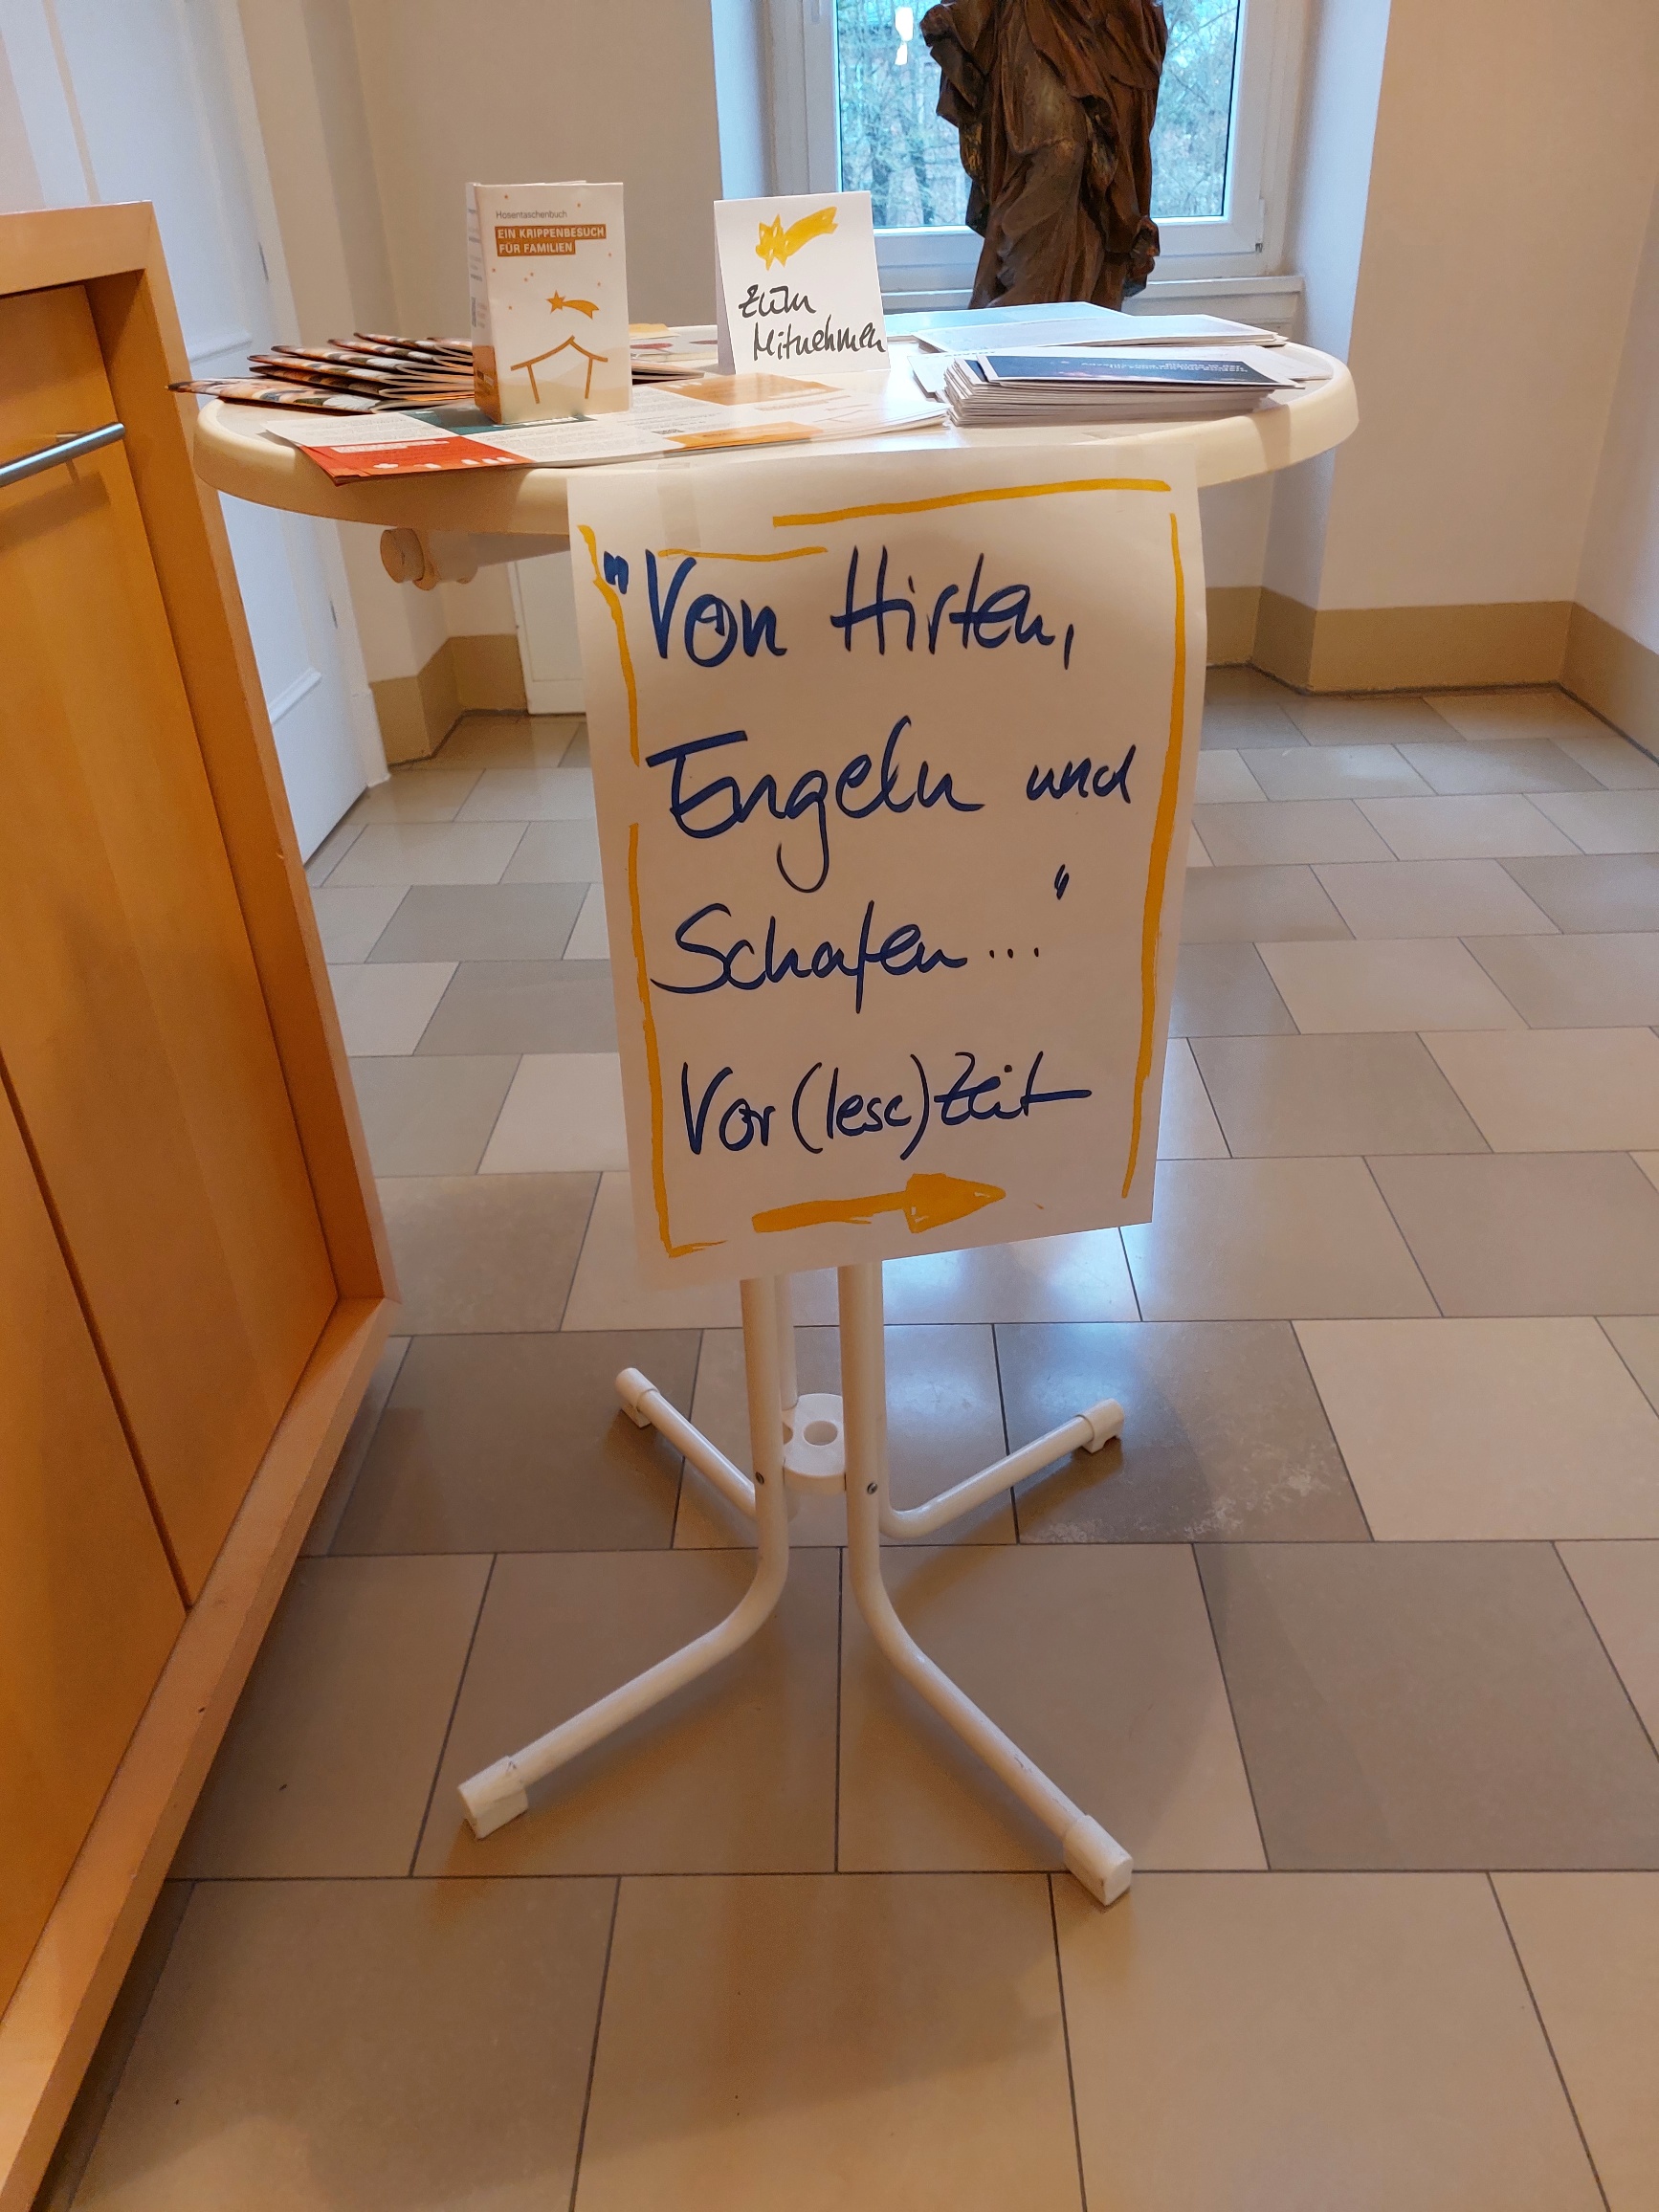 Hosentaschenbuch
EIN KRIPPENBESUCH
FÜR FAMILIEN
Zum
Mitnehmen
"Von Hirten,
Engeln und
Schafen..."
Vor(lese)Zeit